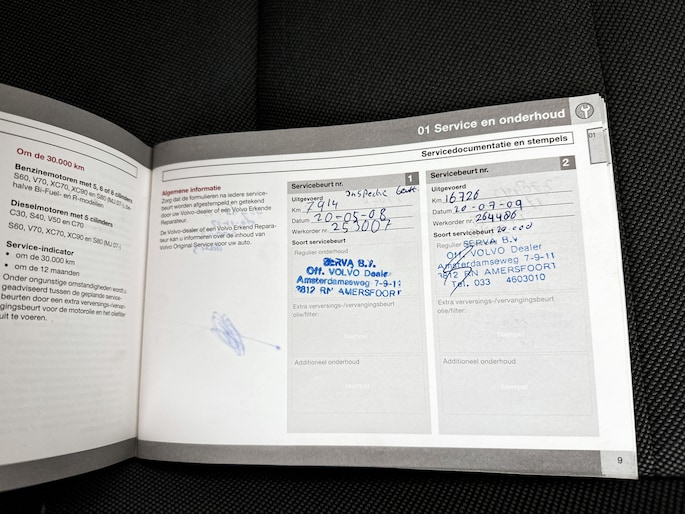 Om de 30.000 km
Benzinemotoren met 5, 6 of 8 cilinders
S60, V70, XC70, XC90 en S80 (MJ 07-),
halve Bi-Fuel- en R-modellen
Dieselmotoren met 5 cylinders
C30, S40, V50 en C70
S60, V70, XC70, XC90 en S80 (MJ 07-)
Service-indicator
• om de 30.000 km
• om de 12 maanden
Onder ongunstige omstandigheden wordt
geadviseerd tussen de geplande service-
beurten door een extra verversings-/vervan-
gingsbeurt voor de motorolie en het oliefilter
uit te voeren.
01 Service en onderhoud
Servicedocumentatie en stempels
01
Algemene informatie
Zorg dat de formulieren na iedere service-
beurt worden afgestempeld en getekend
door uw Volvo-dealer of een Volvo Erkende
Reparateur.
De Volvo-dealer of een Volvo Erkend Repara-
teur kan u informeren over de inhoud van
Volvo Original Service voor uw auto.
Servicebeurt nr. 1
Uitgevoerd
Inspectie beurt
Km 7914
Datum 20-05-08
Werkorder nr. 253007
Soort servicebeurt
Regulier onderhoud
SERVA B.V.
Off. VOLVO Dealer
Amsterdamseweg 7-9-11
3812 RN AMERSFOORT
Extra verversings-/vervangingsbeurt
olie/filter:
Stempel
Additioneel onderhoud
Stempel
Servicebeurt nr. 2
Uitgevoerd
Km 16726
Datum 20-07-09
Werkorder nr. 264486
Soort servicebeurt 20.000
Regulier
SERVA B.V.
Off. VOLVO Dealer
Amsterdamseweg 7-9-11
3812 RN AMERSFOORT
Tel. 033 4603010
Extra verversings-/vervangingsbeurt
olie/filter:
Stempel
Additioneel onderhoud
Stempel
9